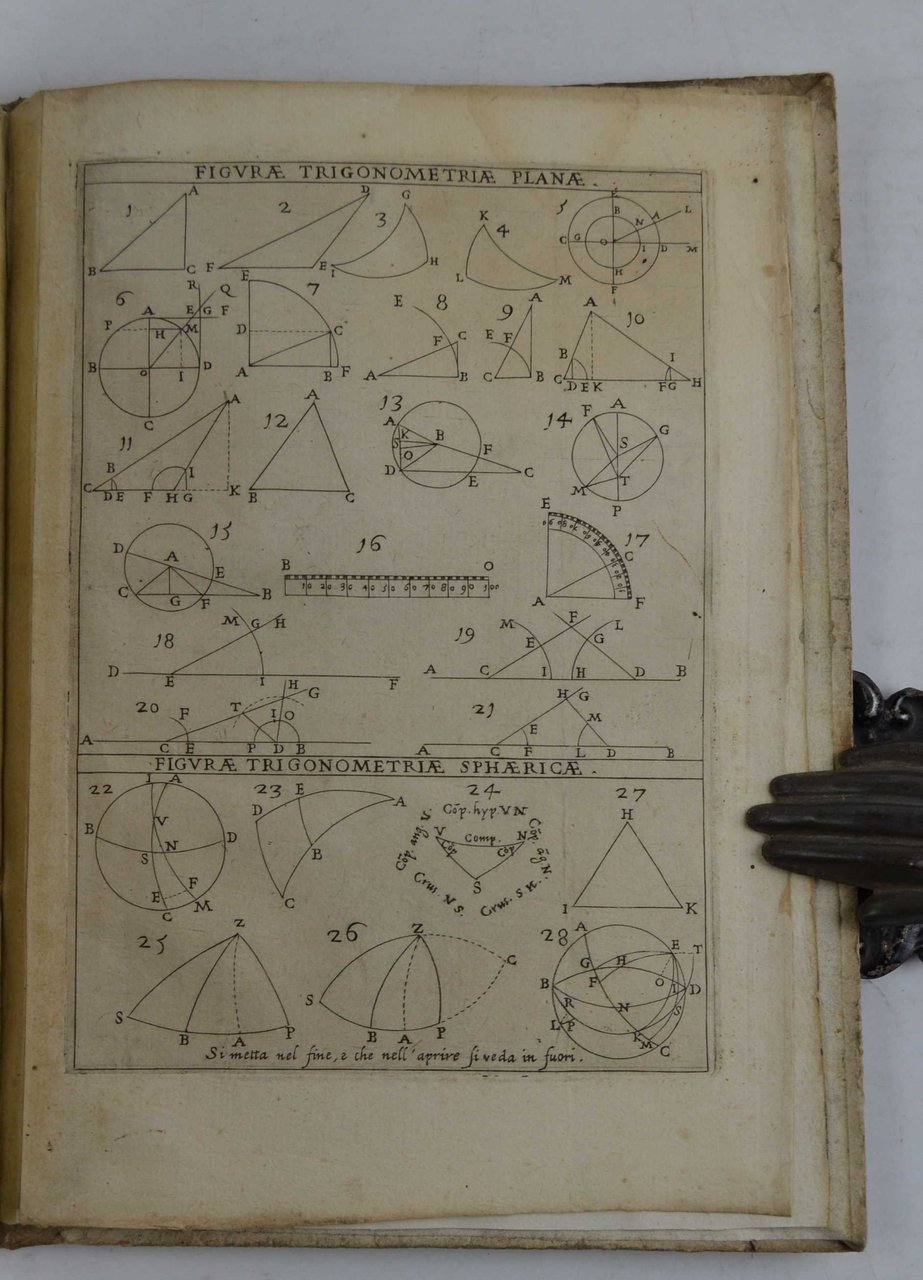 FIGVRÆ TRIGONOMETRIÆ PLANÆ.
1 A B C
2 D F E
3 G I H
4 K L M
5 E B N A L C G O I D M H F
6 R Q A E G F P H M B O I D C
7 E D C A B F
8 E C F A B
9 A E F C B
10 A B I C D E K F G H
11 A B I C D E F H G K
12 A B C
13 A K B S O F D E C
14 F A G S T M P
15 D A E C G F B
16 B O
10 20 30 40 50 60 70 80 90 100
17 E C A F
18 M G H D E I F
19 M F L E G A C I H D B
20 H G T I O F A C E P D B
21 H G M E A C F L D B
FIGVRÆ TRIGONOMETRIÆ SPHÆRICÆ.
22 I A V B D S N E F C M
23 E D A B C
24
Cõp. hyp. V N
Cõp. ang. V.
Cõp. ãg N.
V Comp. N
Cõp Cõp
S
Crus. V S.
Crus. S K.
27 H I K
25 Z S B A P
26 Z C S B A P
28 A E T G H B F O I D R N L P S K M C
Si metta nel fine, e che nell'aprire si veda in fuori.